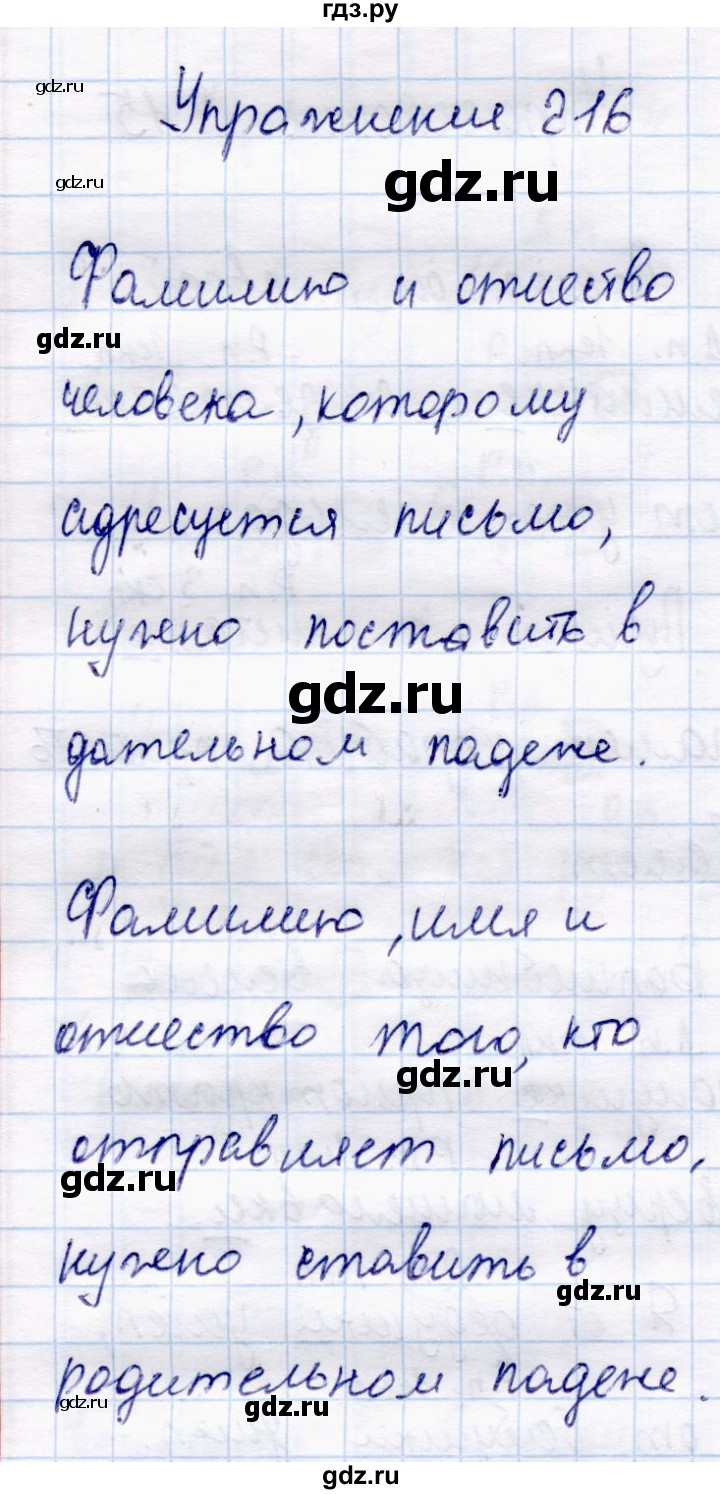 гдз.ру
gdz.ru
Упражнение 216
gdz.ru
gdz.ru
Фамилию и отчество
gdz.ru
человека, которому
адресуется письмо,
нужно поставить в
gdz.ru
дательном падеже.
Фамилию, имя и
отчество того, кто
gdz.ru
отправляет письмо,
gdz.ru
нужно ставить в
gdz.ru
родительном падеже.
gdz.ru
gdz.ru
gdz.ru